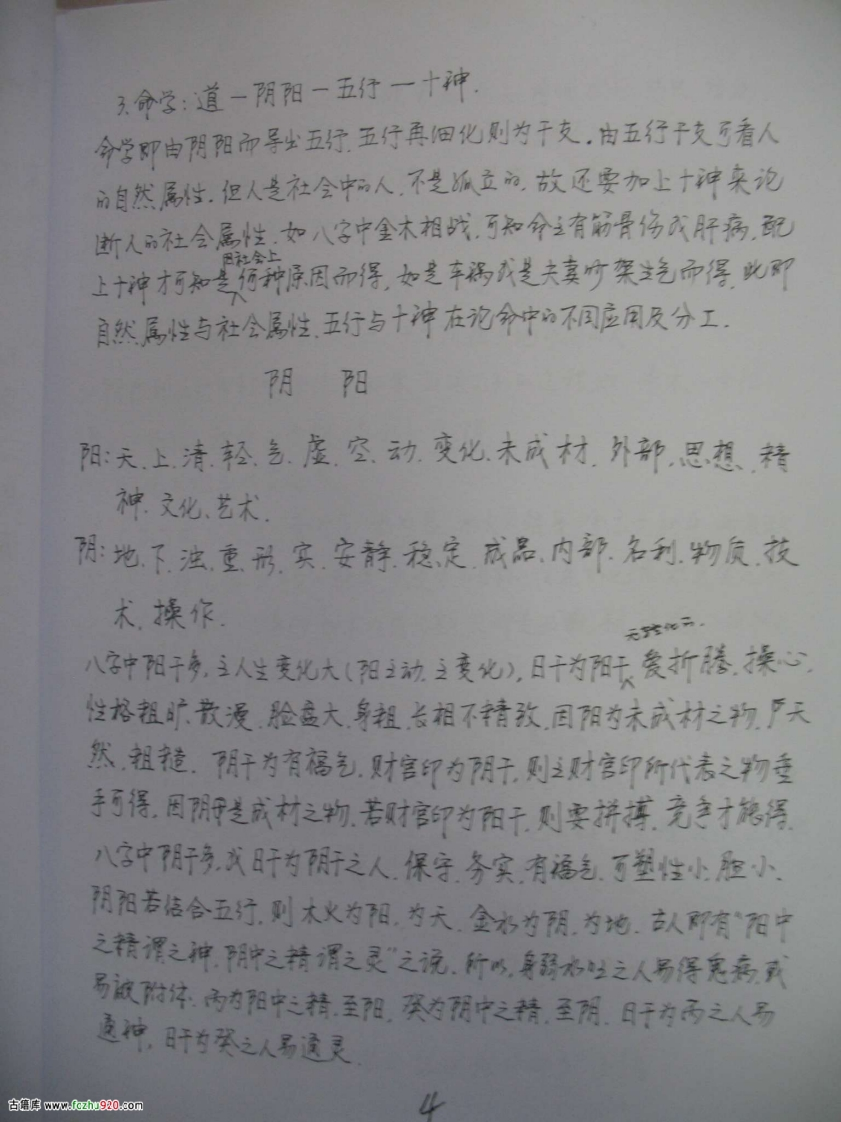 3.命学：道一阴阳一五行一十神.
命学即由阴阳而导出五行.五行再细化则为干支.由五行干支可看人
的自然属性.但人是社会中的人.不是孤立的.故还要加上十神来论
断人的社会属性.如八字中金木相战.可知命主有筋骨伤或肝病.配
因社会上
上十神才可知是何种原因而得.如是车祸或是夫妻吵架生气而得.此即
自然属性与社会属性.五行与十神在论命中的不同应用及分工.
阴 阳
阳:天.上.清.轻.气.虚.空.动.变化.未成材.外部.思想.精
神.文化、艺术.
阴:地.下.浊.重.形.实.安静.稳定.成品、内部.名利.物质.技
术.操作.
八字中阳干多.主人生变化大(阳主动.主变化),日干为阳干爱折腾.操心.
性格粗旷.散漫.脸盘大.身粗.长相不精致.因阳为未成材之物.天
然.粗糙.阴干为有福气.财官印为阴干,则主财官印所代表之物垂
手可得.因阴是成材之物.若财官印为阳干.则要拼搏.竞争才能得.
八字中阴干多.或日干为阴干之人.保守.务实.有福气.可塑性小.胆小.
阴阳若结合五行.则木火为阳.为天.金水为阴.为地.古人即有"阳中
之精谓之神.阴中之精谓之灵"之说.所以,身弱水旺之人易得鬼病.或
易被附体.丙为阳中之精.至阳.癸为阴中之精.至阴.日干为丙之人易
通神,日干为癸之人易通灵.
4
古籍库 www.fczhu920.com